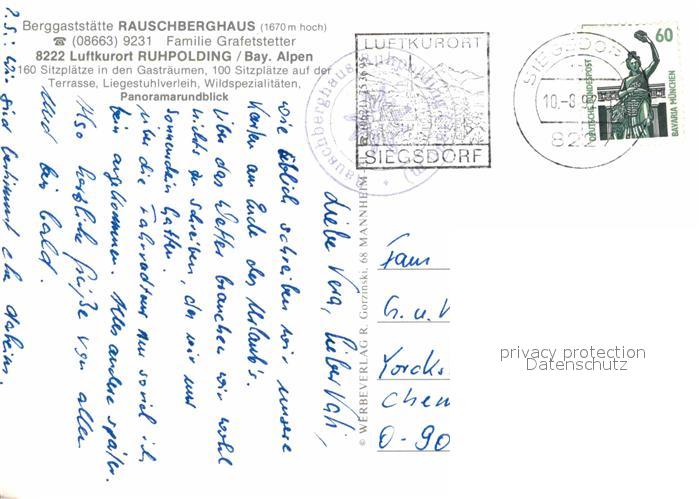 Berggaststätte RAUSCHBERGHAUS (1670 m hoch)
☎ (08663) 9231 Familie Grafetstetter
8222 Luftkurort RUHPOLDING / Bay. Alpen
160 Sitzplätze in den Gasträumen, 100 Sitzplätze auf der
Terrasse, Liegestuhlverleih, Wildspezialitäten,
Panoramarundblick
LUFTKURORT
SIEGSDORF
SIEGSDORF
10.-8.92
822
60
DEUTSCHE BUNDESPOST
BAVARIA MÜNCHEN
Rauschberghaus Ruhpolding
© WERBEVERLAG R. Gorzinski, 68 MANNHEIM
Liebe Vera, lieber Vati,
wie üblich schreiben wir unsere
Karten am Ende des Urlaub's.
Über das Wetter brauchen wir wohl
nichts zu schreiben, da wir nur
Sonnenschein hatten.
Über die Fahrradtour nur soviel ich
bin angekommen. Alles andere später.
Also herzliche Grüße von allen
und bis bald.
P.S.: Wir sind bestimmt eher daheim.
Fam
G. u. V
Yorcks
Chem
O-90
privacy protection
Datenschutz